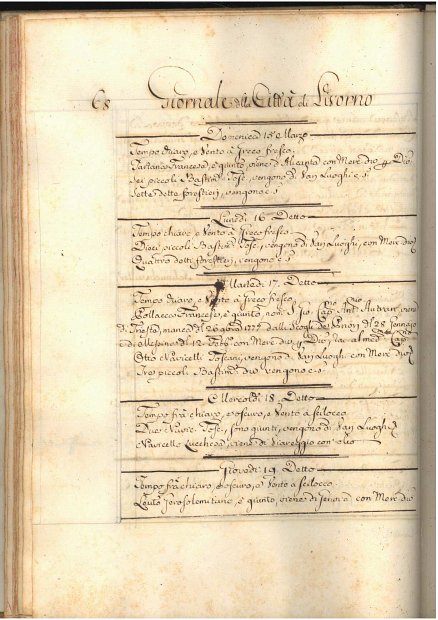 68 Giornale di Città di Livorno
Domenica 15 Marzo
Tempo chiaro, e Vento à Greco fresco
Tartana Francese, è giunto, viene d'Alicante con Merc.
Sei piccoli Bastim. Tosc. vengono di Vari Luoghi e s
Sette detti forestieri, vengono e s
Lunedì 16 Detto
Tempo chiaro e Vento à Greco fresco
Dieci piccoli Bastim. Tosc., vengono di Vari Luoghi, con Merc. div.
Quattro detti forestieri, vengono e s
Martedì 17 Detto
Tempo chiaro, e Vento à Greco fresco
Pollacca Francese, è giunto, nom. S. Cap. Ant.
di Trieste, manca dal 26 dal 28 Gennaio
e di Messina dal 12 Feb. con Merc. div.
Otto Navicelli Toscani, vengono di Vari Luoghi con Merc. div.
Tre piccoli Bastim. vengono e s
Mercoldì 18 Detto
Tempo frà chiaro, e oscuro, e Vento à scilocco
Due Navic. Tosc., sono giunti, vengono di Vari Luoghi
Navicello Lucchese, viene di Viareggio con olio
Giovedì 19 Detto
Tempo frà chiaro, e oscuro, e Vento à scilocco
Leuto Gerosolimitano, è giunto, viene di Genova con Merc. div.